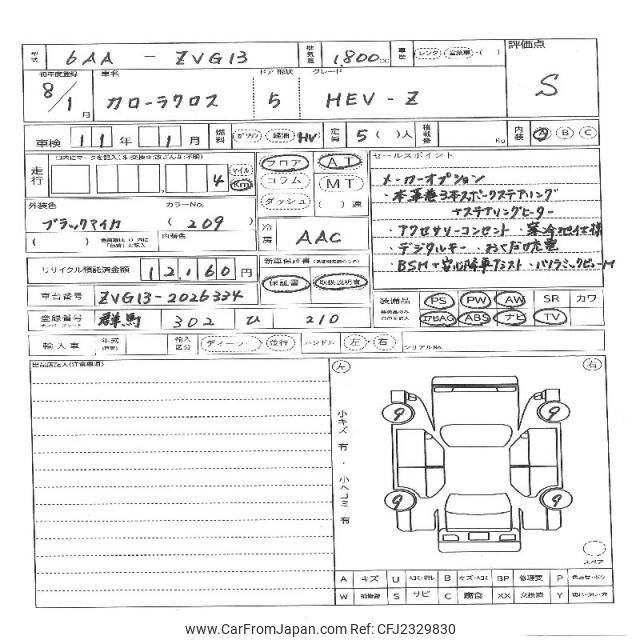 型式 6AA - ZVG13 排気量 1,800cc 車歴 レンタ・ ・( ) 評価点
S
初年度登録 車名 ドア 形状 グレード
8/1月 カローラクロス 5 HEV-Z
車検 11年 1月 燃料 ガソリン 軽油 HV 定員 5( )人 積載量 Kg 内装 A B C
走行 4 マイル Km
フロア AT
コラム MT
ダッシュ ( )速
セールスポイント
メーカーオプション
・本革巻3本スポークステアリング
+ステアリングヒーター
・アクセサリーコンセント・寒冷地仕様
・デジタルキー・おくだけ充電
・BSM+安心降車アシスト・パノラミックビューM
外装色 カラーNo.
ブラックマイカ (209)
( ) 内装色
冷房 AAC
リサイクル預託済金額 12,160円
新車保証書
保証書 取扱説明書
車台番号 ZVG13-2026334
装備品 PS PW AW SR カワ
エアBAG ABS ナビ TV
登録番号 群馬 302 ひ 210
輸入車 年式 輸入区分 ディーラー・並行 ハンドル 左・右 シリアルNo.
出品店記入(注意事項)
左 右
小キズ有・小ヘコミ有
9 9
9 9
スペア
A キズ U B キズ・ヘコミ BP 修理要 P
W 補修跡 S サビ C 腐食 XX 交換済 Y
www.CarFromJapan.com - CFJ2329830